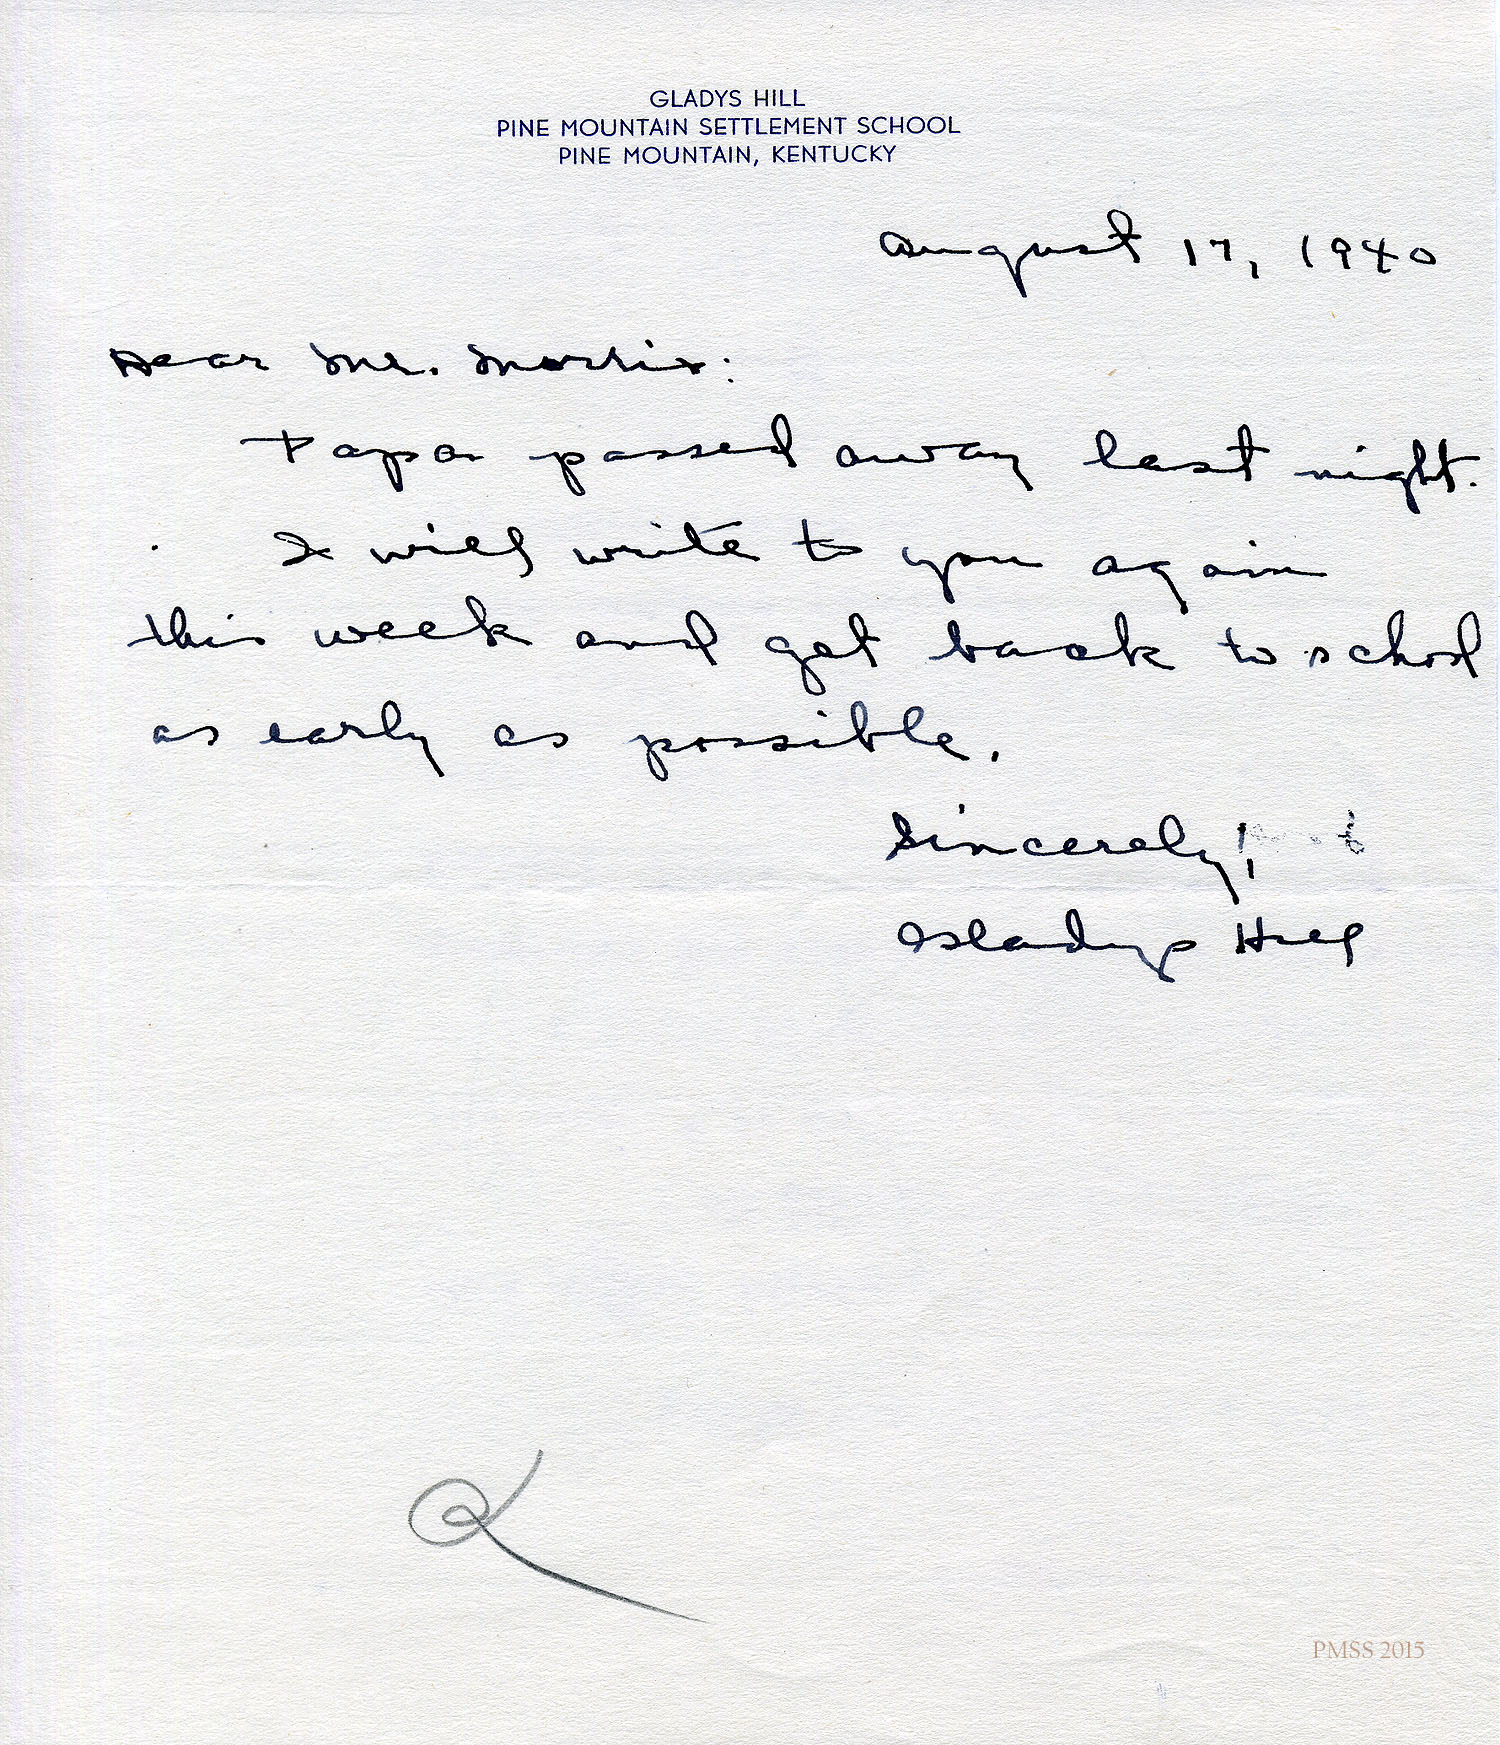 GLADYS HILL
PINE MOUNTAIN SETTLEMENT SCHOOL
PINE MOUNTAIN, KENTUCKY
August 17, 1940
Dear Mr. Morris:
Papa passed away last night.
I will write to you again
this week and get back to school
as early as possible.
Sincerely,
Gladys Hill
PMSS 2015